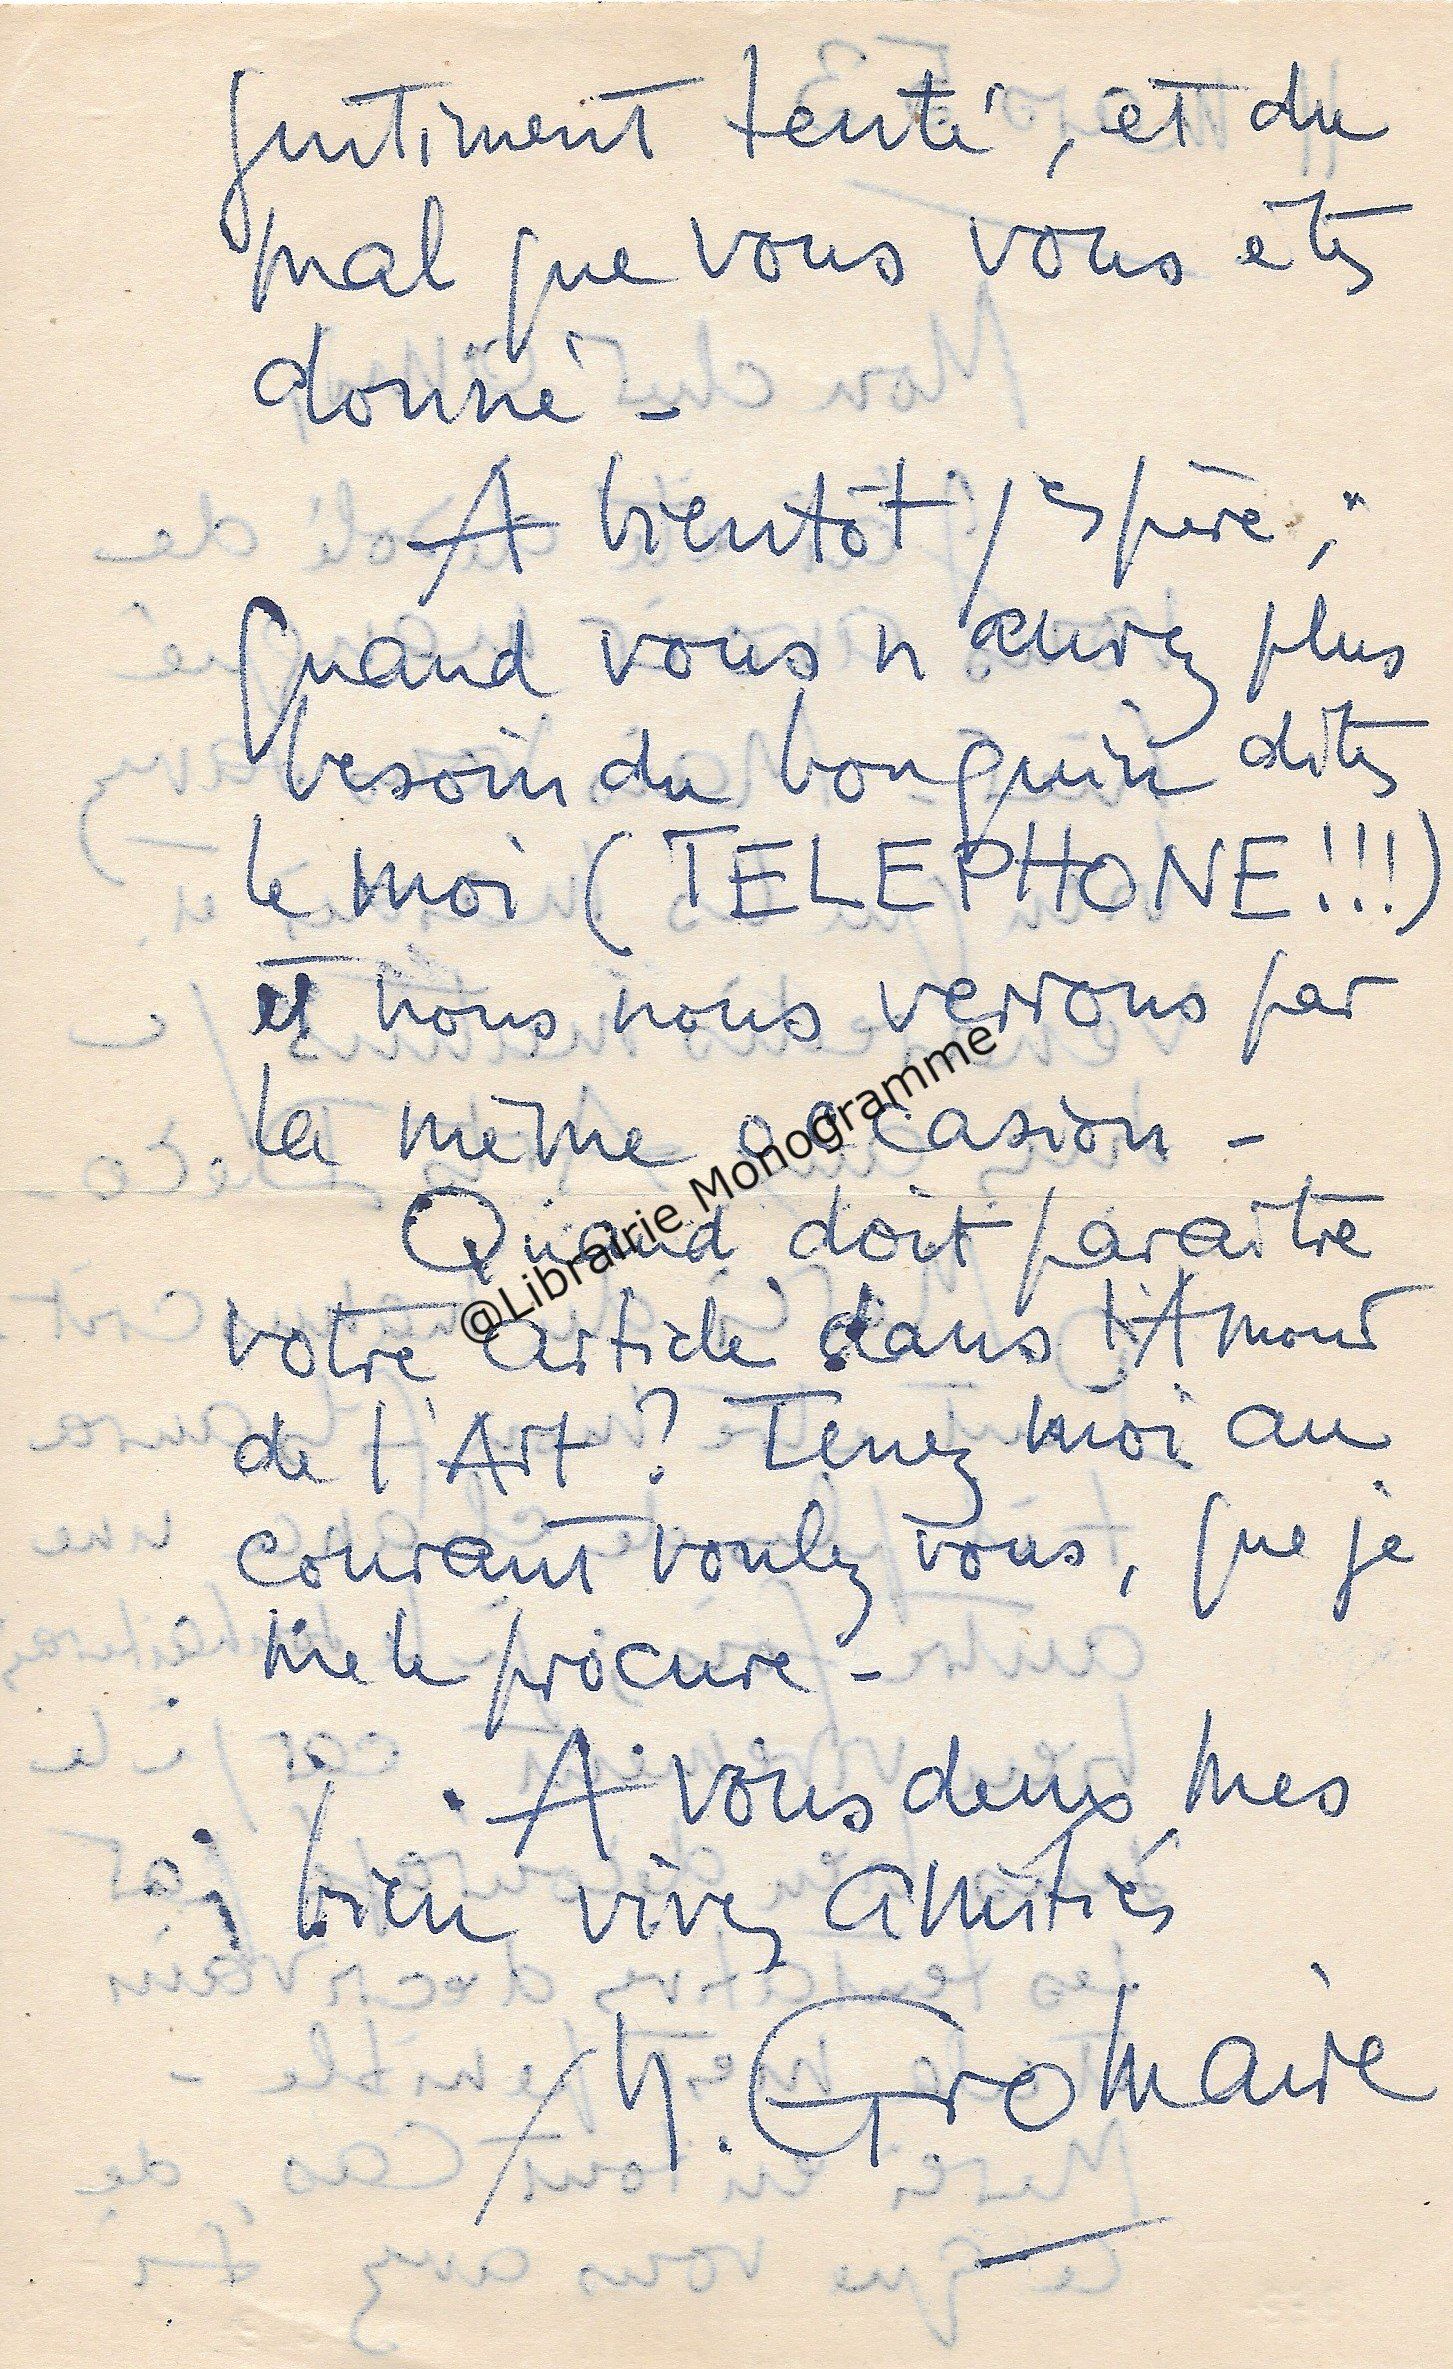 gentiment tenté, et du
mal que vous vous êtes
donné -
A bientôt j'espère,
quand vous n'aurez plus
besoin du bouquin dites
le moi (TELEPHONE!!!)
et nous nous verrons par
la même occasion -
Quand doit paraître
votre article dans l'Amour
de l'Art? Tenez moi au
courant voulez vous, que je
me le procure -
A vous deux mes
bien vives amitiés
M. Gromaire
@Librairie Monogramme